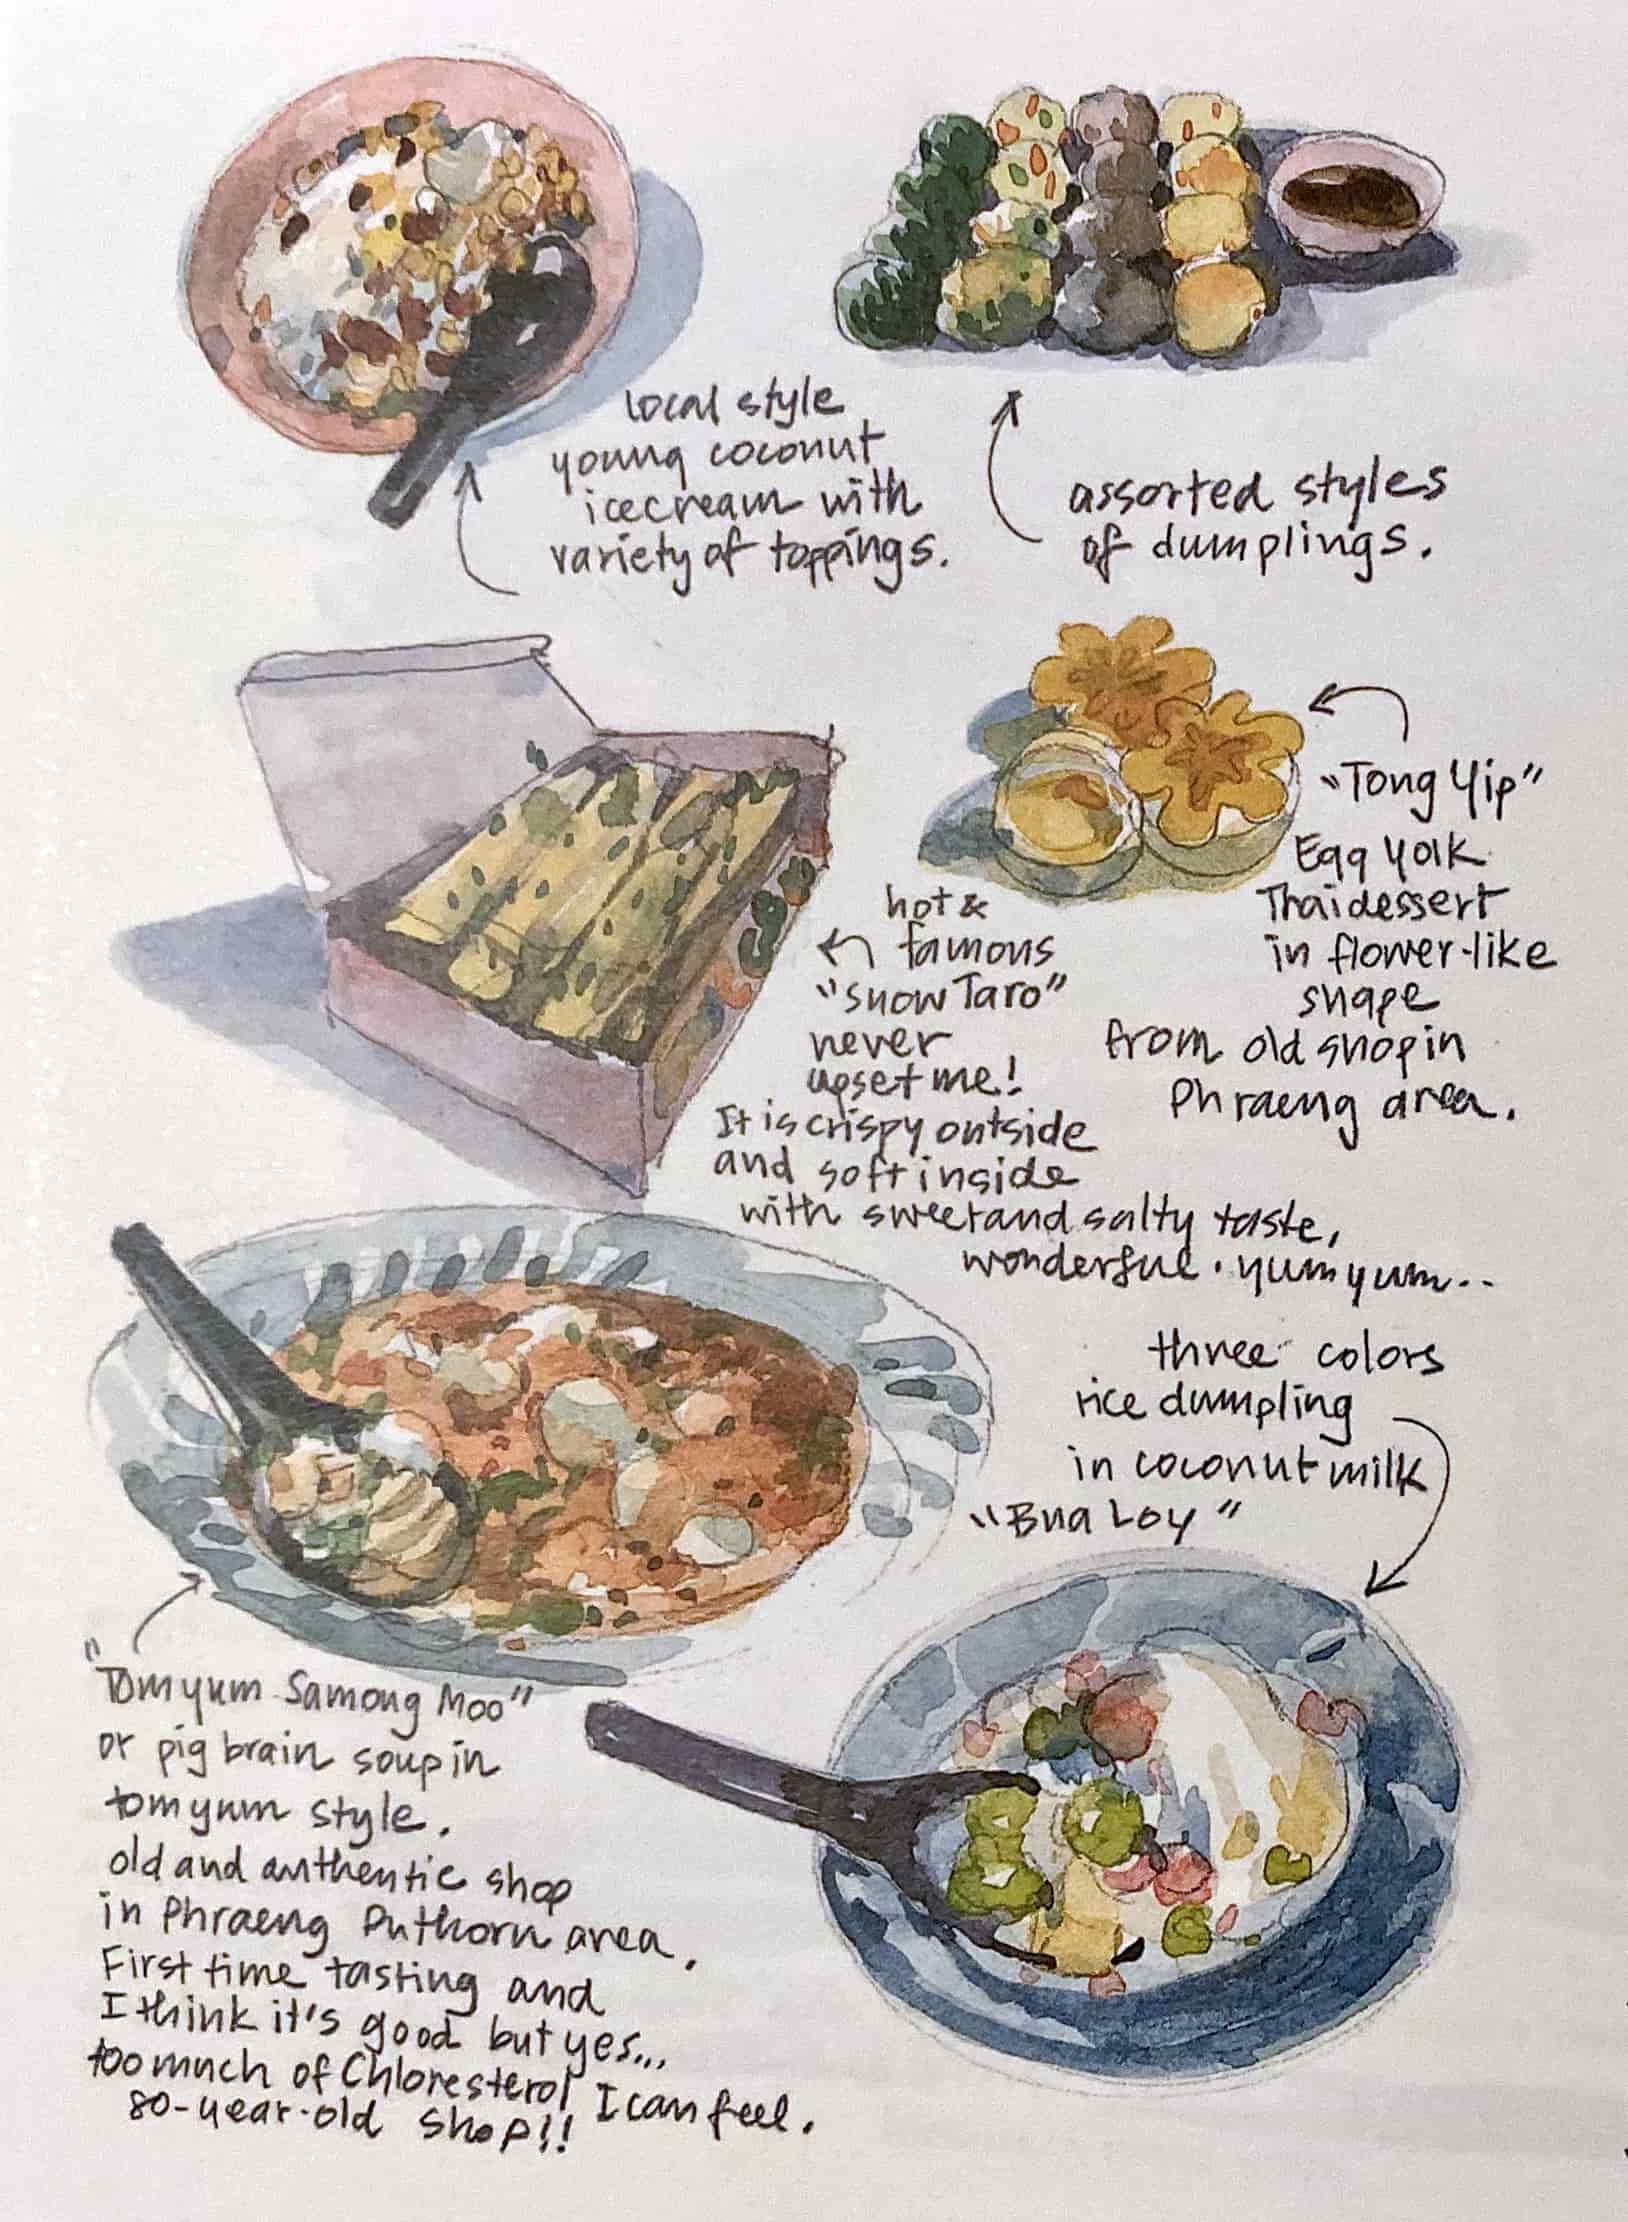 local style
young coconut
icecream with
variety of toppings.
assorted styles
of dumplings.
"Tong Yip"
Egg yolk
Thai dessert
in flower-like
shape
from old shop in
Phraeng area.
hot &
famous
"Snow Taro"
never
upset me!
It is crispy outside
and soft inside
with sweet and salty taste,
wonderful. yum yum..
three colors
rice dumpling
in coconut milk
"Bua Loy"
"Tom yum Samong Moo"
or pig brain soup in
tom yum style.
old and authentic shop
in Phraeng Puthorn area.
First time tasting and
I think it's good but yes...
too much of Chloresterol I can feel.
80-year-old shop!!